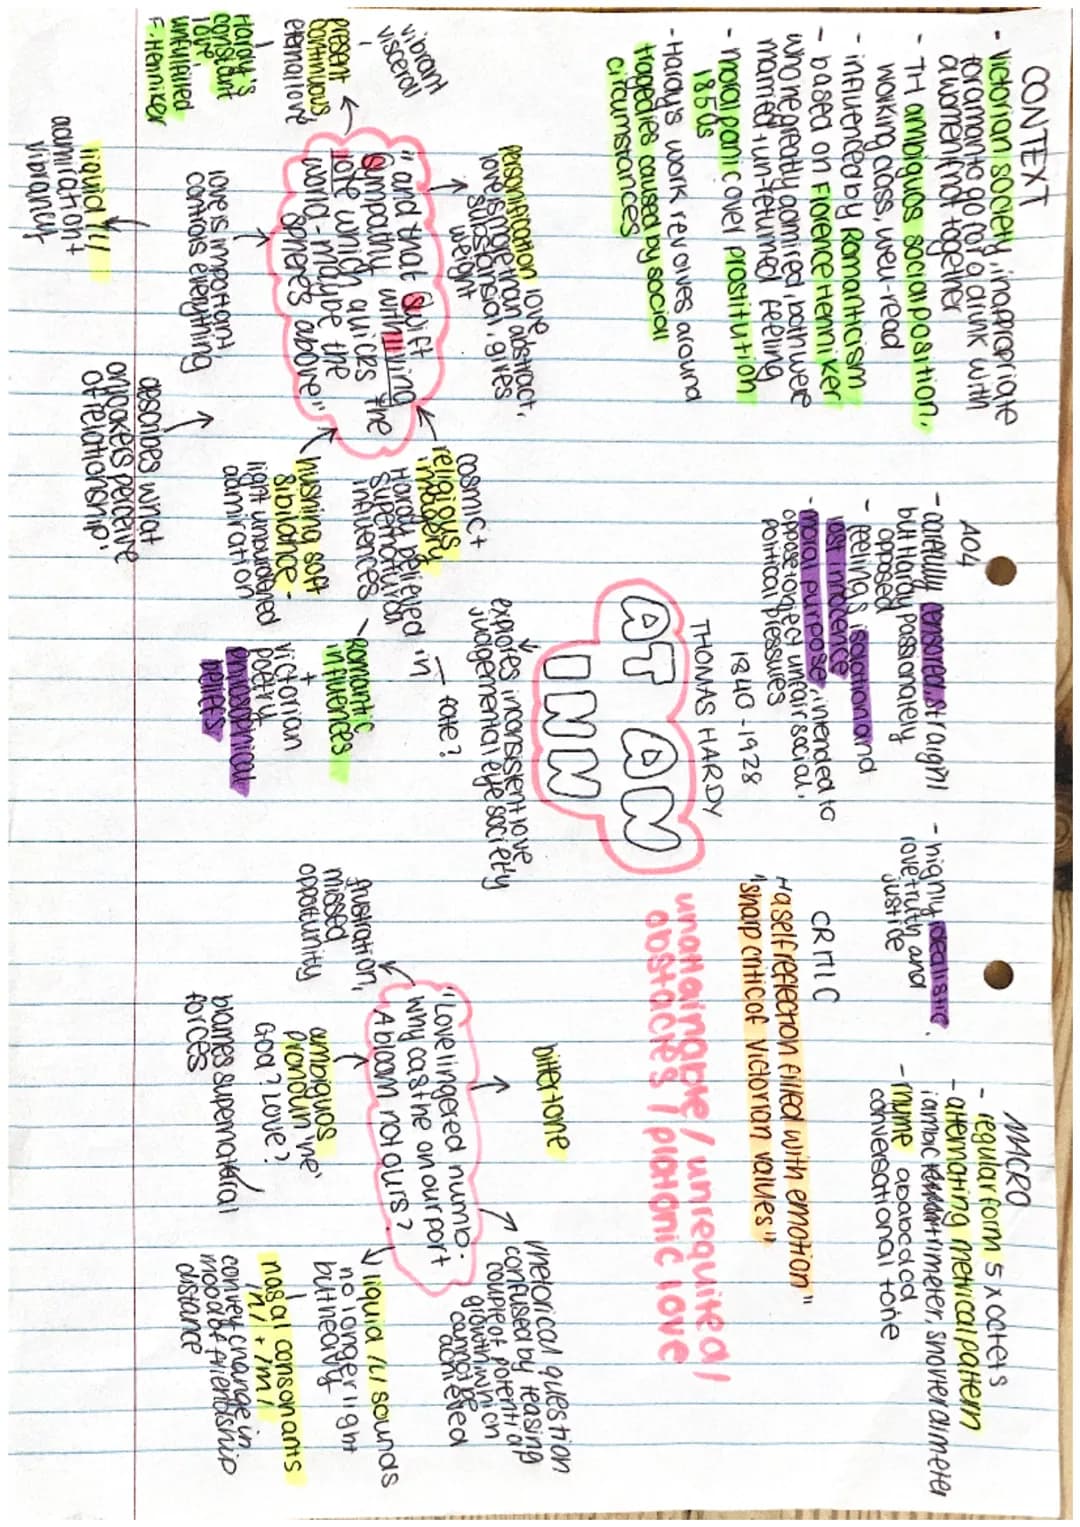 CONTEXT
- Victorian society, inapropriate
for a man to go for a drunk with
a women (not together
- TH ambiguos social position,
working class, well-read
- influenced by Romanticism
- based on Florence Henniker
who he greatly admired, both were
married + un-returned feeling
- moral panic over prostitution
1850s
- Hardy's work revolves around
tragedies caused by social
circumstances
AO4
- carefully censored, straight
but Hardy passionately
opposed
- feelings isolation and
lost innocence
- moral purpose, intended to
oppose + object unfair social,
political pressures
- highly idealistic.
love truth and
justice
MACRO
- regular form 5 x octets
- alternating metrical pattern
iambic trimeter, shorter dimeter
- rhyme ababcdcd
conversational tone
CRITIC
"a self reflection filled with emotion"
"sharp critic of victorian values"
THOMAS HARDY
1840-1928
AT AN
INN
unattainable / unrequited /
obstacles / platonic love
explores inconsistent love
judgemental eye society
personification love,
love is more than abstract,
substansial, gives
weight
vibrant
visceral
present
continuous
eternal love
Hardy's
constant
love
unfulfilled
F. Henniker
"and that swift
sympathy with living
love which quicks the
world - maybe the
spheres above"
cosmic +
religious
imagery
Hardy believed in
supernatural
influences
fate?
hushing soft
sibilance -
light unburdened
admiration
Romantic
influences
+
victorian
poetry
philosophical
beliefs
love is important
controls everything
describes what
onlookers perceive
of relationship.
liquid /l/
admiration +
vibrancy
bitter tone
"Love lingered numb.
Why cast he on our port
A bloom not ours?
rhetorical question
confused by teasing
couple of potential
growth which
cannot be
achieved
frustration,
missed
oppatunity
ambiguos
pronoun 'he'
God? Love?
blames supernatural
forces
liquid /l/ sounds
no longer light
but heavy
nasal consonants
/n/ + /m/
convey change in
mood of friendship
distance